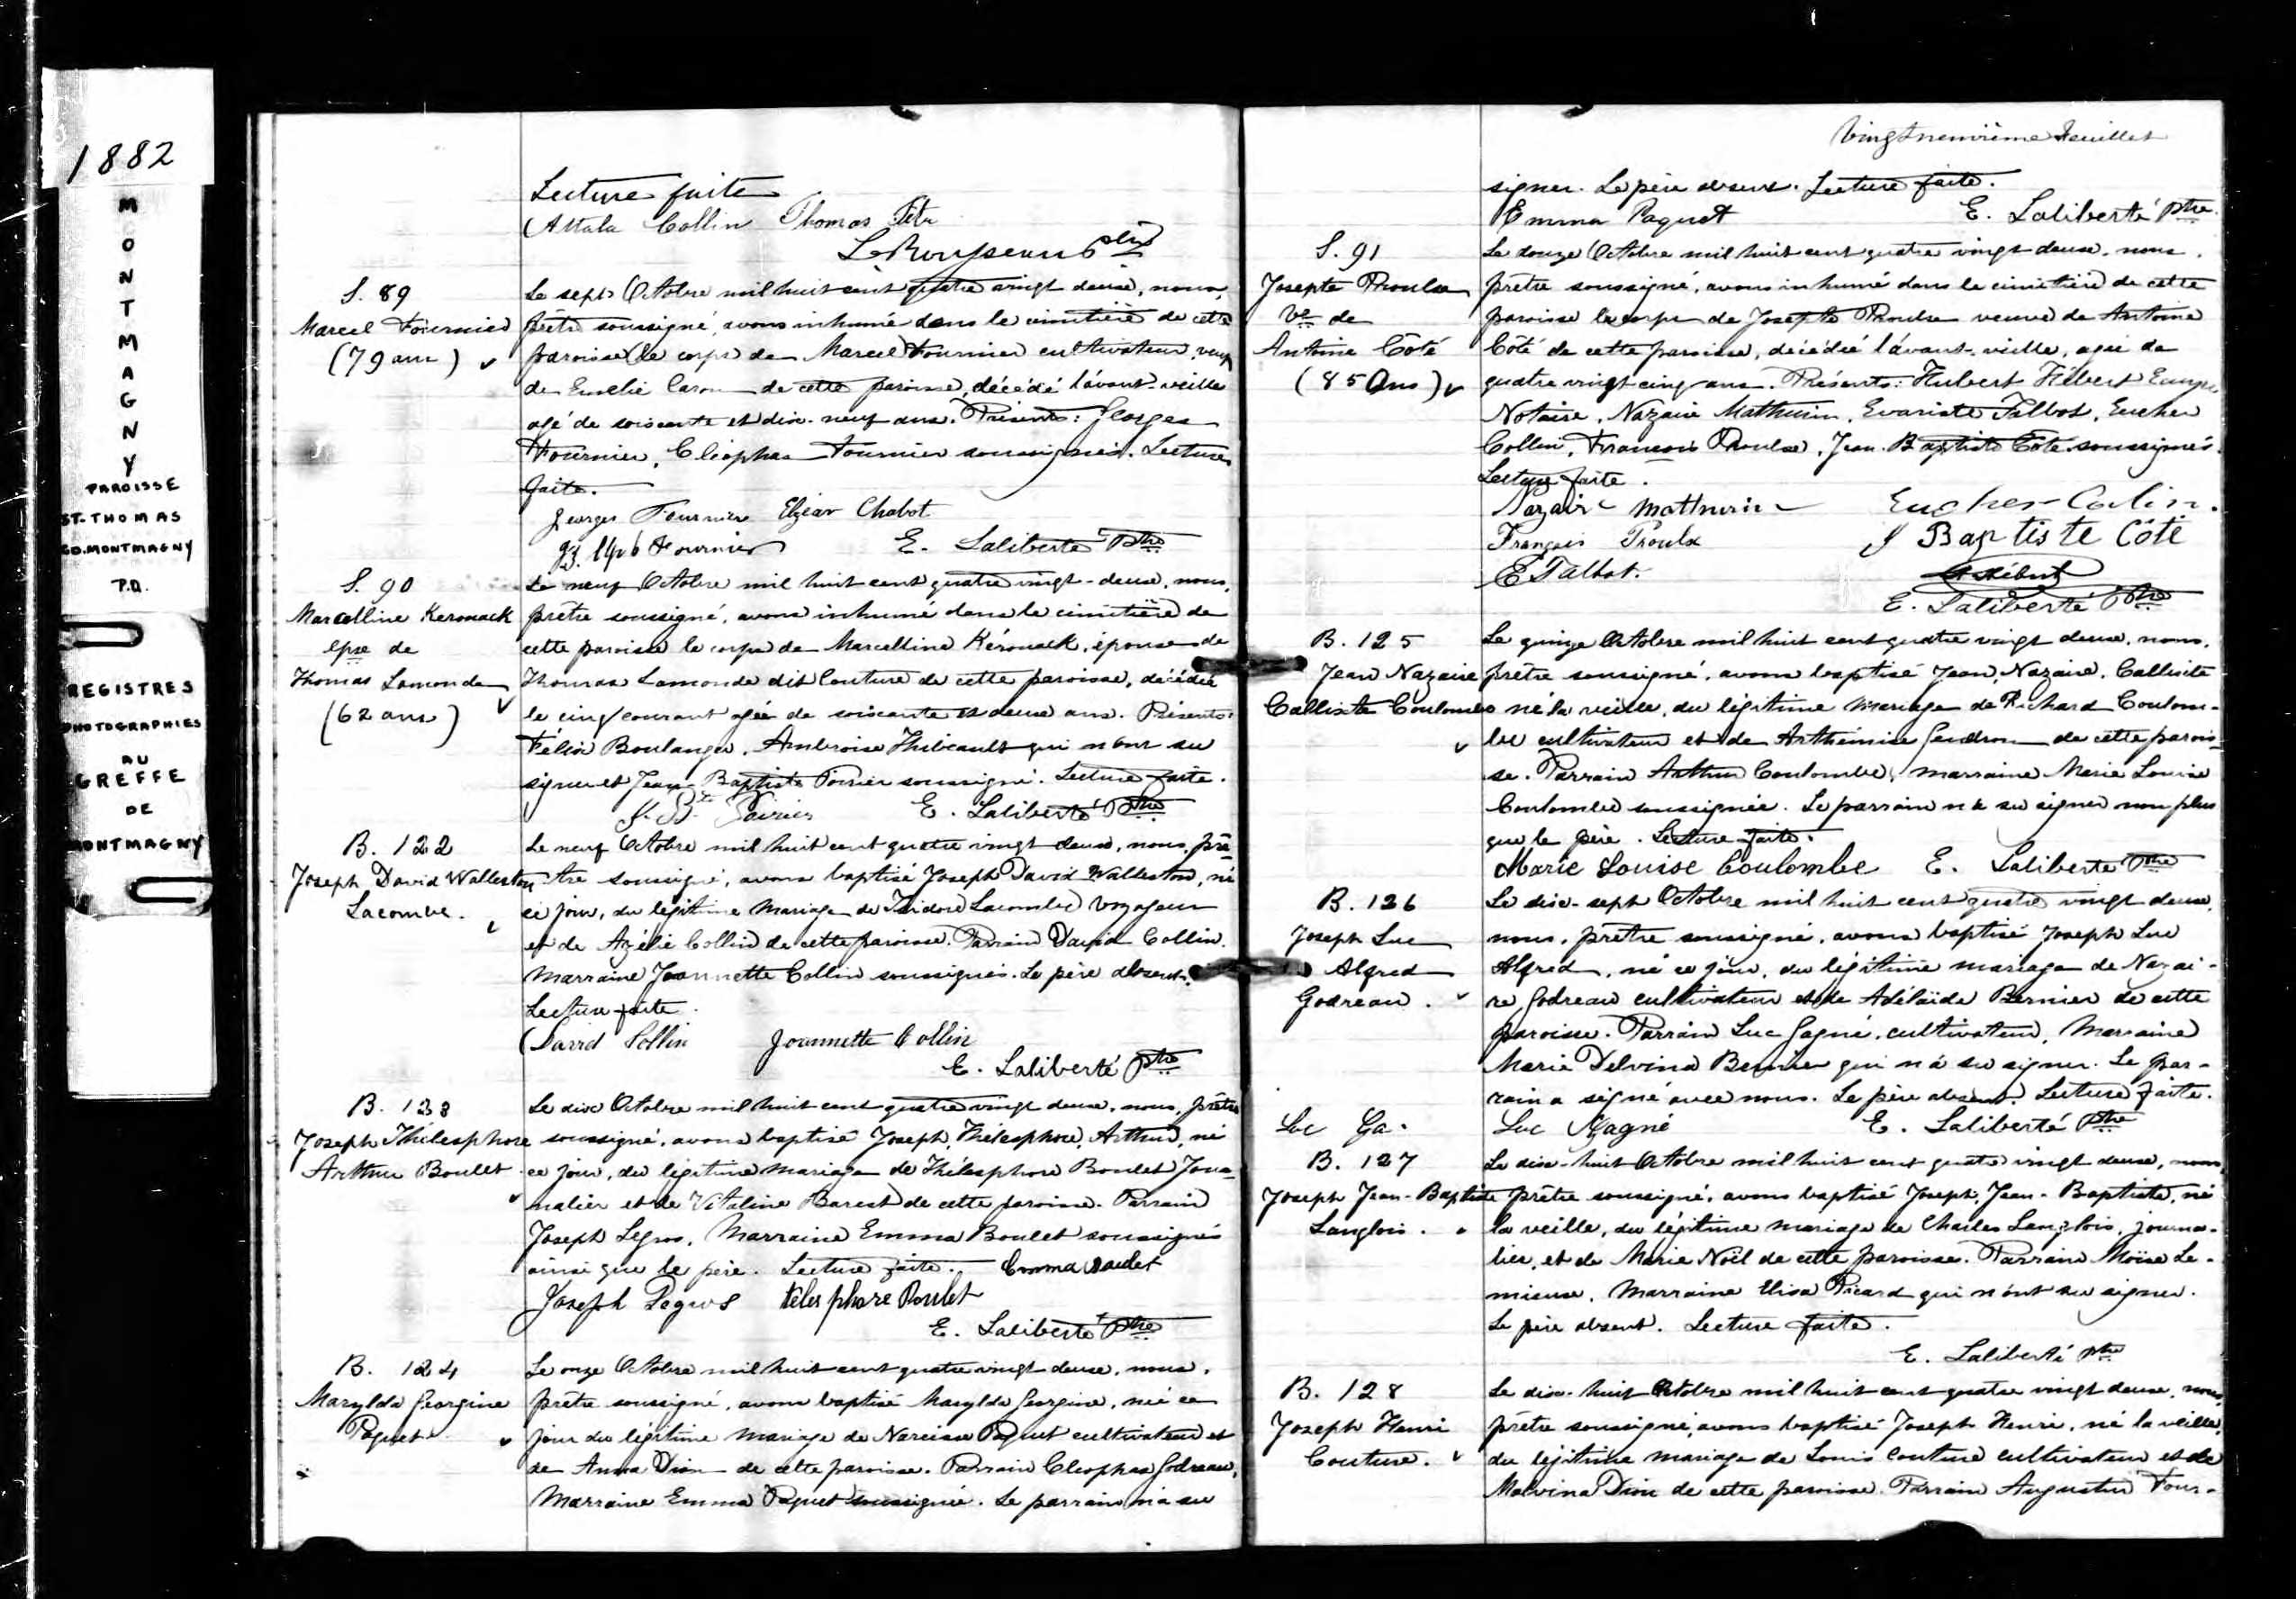 1882
MONTMAGNY
PAROISSE
ST-THOMAS
CO. MONTMAGNY
P.Q.
REGISTRES
PHOTOGRAPHIES
AU
GREFFE
DE
MONTMAGNY
Lecture faite
Attala Collin Thomas
S. 89
Marcel Fournier
(79 ans)
Le sept Octobre mil huit cent quatre vingt deux, nous,
prêtre soussigné, avons inhumé dans le cimetière de cette
paroisse le corps de Marcel Fournier cultivateur, veuf
de Emélie Caron de cette paroisse, décédé l'avant-veille
agé de soixante et dix-neuf ans. Présents: Georges
Fournier, Cléophas Fournier soussignés. Lecture
faite.
Georges Fournier Elzéar Chabot
Fournier E. Laliberté Ptre
S. 90
Marcelline Kerouack
épse de
Thomas Lamonde
(62 ans)
Le neuf Octobre mil huit cent quatre vingt-deux, nous,
prêtre soussigné, avons inhumé dans le cimetière de
cette paroisse le corps de Marcelline Kérouack, épouse de
Thomas Lamonde dit Couture de cette paroisse, décédée
le cinq courant agée de soixante et deux ans. Présents:
Félix Boulanger, Ambroise Thibeault qui n'ont su
signer et Jean-Baptiste Poirier soussigné. Lecture faite.
J. Bte Poirier E. Laliberté Ptre
B. 122
Joseph David Walleston
Lacombe.
Le neuf Octobre mil huit cent quatre vingt deux, nous, prê-
tre soussigné, avons baptisé Joseph David Walleston, né
ce jour, du légitime mariage de Isidore Lacombe voyageur
et de Azélie Collin de cette paroisse. Parrain David Collin.
Marraine Joannette Collin soussignés. Le père absent.
Lecture faite.
David Collin Joannette Collin
E. Laliberté Ptre
B. 123
Joseph Thélesphore
Arthur Boulet
Le dix Octobre mil huit cent quatre vingt deux, nous, prêtre
soussigné, avons baptisé Joseph, Thélesphore, Arthur, né
ce jour, du légitime mariage de Thélesphore Boulet Jour-
nalier et de Vitaline Barest de cette paroisse. Parrain
Joseph Legros, Marraine Emma Boulet soussignés
ainsi que le père. Lecture faite. Emma Boulet
Joseph Legros télesphore Boulet
E. Laliberté Ptre
B. 124
Marylda Georgine
Paquet
Le onze Octobre mil huit cent quatre vingt deux, nous,
prêtre soussigné, avons baptisé Marylda Georgine, née ce
jour du légitime mariage de Narcisse Paquet cultivateur et
de Anna Dion de cette paroisse. Parrain Cleophas Godreau,
Marraine Emma Paquet soussignée. Le parrain n'a su
Vingt neuvième Feuillet
signer. Le père absent. Lecture faite.
Emma Paquet E. Laliberté Ptre
S. 91
Josepte Proulx
Ve de
Antoine Côté
(85 Ans)
Le douze Octobre mil huit cent quatre vingt deux, nous,
prêtre soussigné, avons inhumé dans le cimetière de cette
paroisse le corps de Josepte Proulx veuve de Antoine
Côté de cette paroisse, décédée l'avant-veille, agée de
quatre vingt cinq ans. Présents: Hubert Hébert
Notaire, Nazaire Mathurin, Evariste Talbot, Eucher
Collin, François Proulx, Jean Baptiste Côté soussignés.
Lecture faite.
Nazaire Mathurin Eucher Colin.
François Proulx J Baptiste Côté
E Talbot. Hébert
E. Laliberté Ptre
B. 125
Jean Nazaire
Calliste Coulombe
Le quinze Octobre mil huit cent quatre vingt deux, nous,
prêtre soussigné, avons baptisé Jean, Nazaire, Calliste
né la veille, du légitime mariage de Richard Coulom-
be cultivateur et de Arthémise Gendron de cette parois-
se. Parrain Arthur Coulombe, marraine Marie Louise
Coulombe soussignée. Le parrain n'a su signer non plus
que le père. Lecture faite.
Marie Louise Coulombe E. Laliberté Ptre
B. 126
Joseph Luc
Alfred
Godreau.
Le dix-sept Octobre mil huit cent quatre vingt deux,
nous, prêtre soussigné, avons baptisé Joseph Luc
Alfred, né ce jour, du légitime mariage de Nazai-
re Godreau cultivateur et de Adélaïde Bernier de cette
paroisse. Parrain Luc Gagné, cultivateur, Marraine
Marie Delvina Bernier qui n'a su signer. Le par-
rain a signé avec nous. Le père absent. Lecture faite.
Luc Ga.
Luc Gagné E. Laliberté Ptre
B. 127
Joseph Jean-Baptiste
Langlois.
Le dix-huit Octobre mil huit cent quatre vingt deux, nous,
prêtre soussigné, avons baptisé Joseph, Jean-Baptiste, né
la veille, du légitime mariage de Charles Langlois, journa-
lier, et de Marie Noël de cette paroisse. Parrain Moïse Le-
mieux, Marraine Elisa Picard qui n'ont su signer.
Le père absent. Lecture faite.
E. Laliberté Ptre
B. 128
Joseph Henri
Couture.
Le dix-huit Octobre mil huit cent quatre vingt deux, nous,
prêtre soussigné, avons baptisé Joseph Henri, né la veille,
du légitime mariage de Louis Couture cultivateur et de
Malvina Dion de cette paroisse. Parrain Augustin Four-